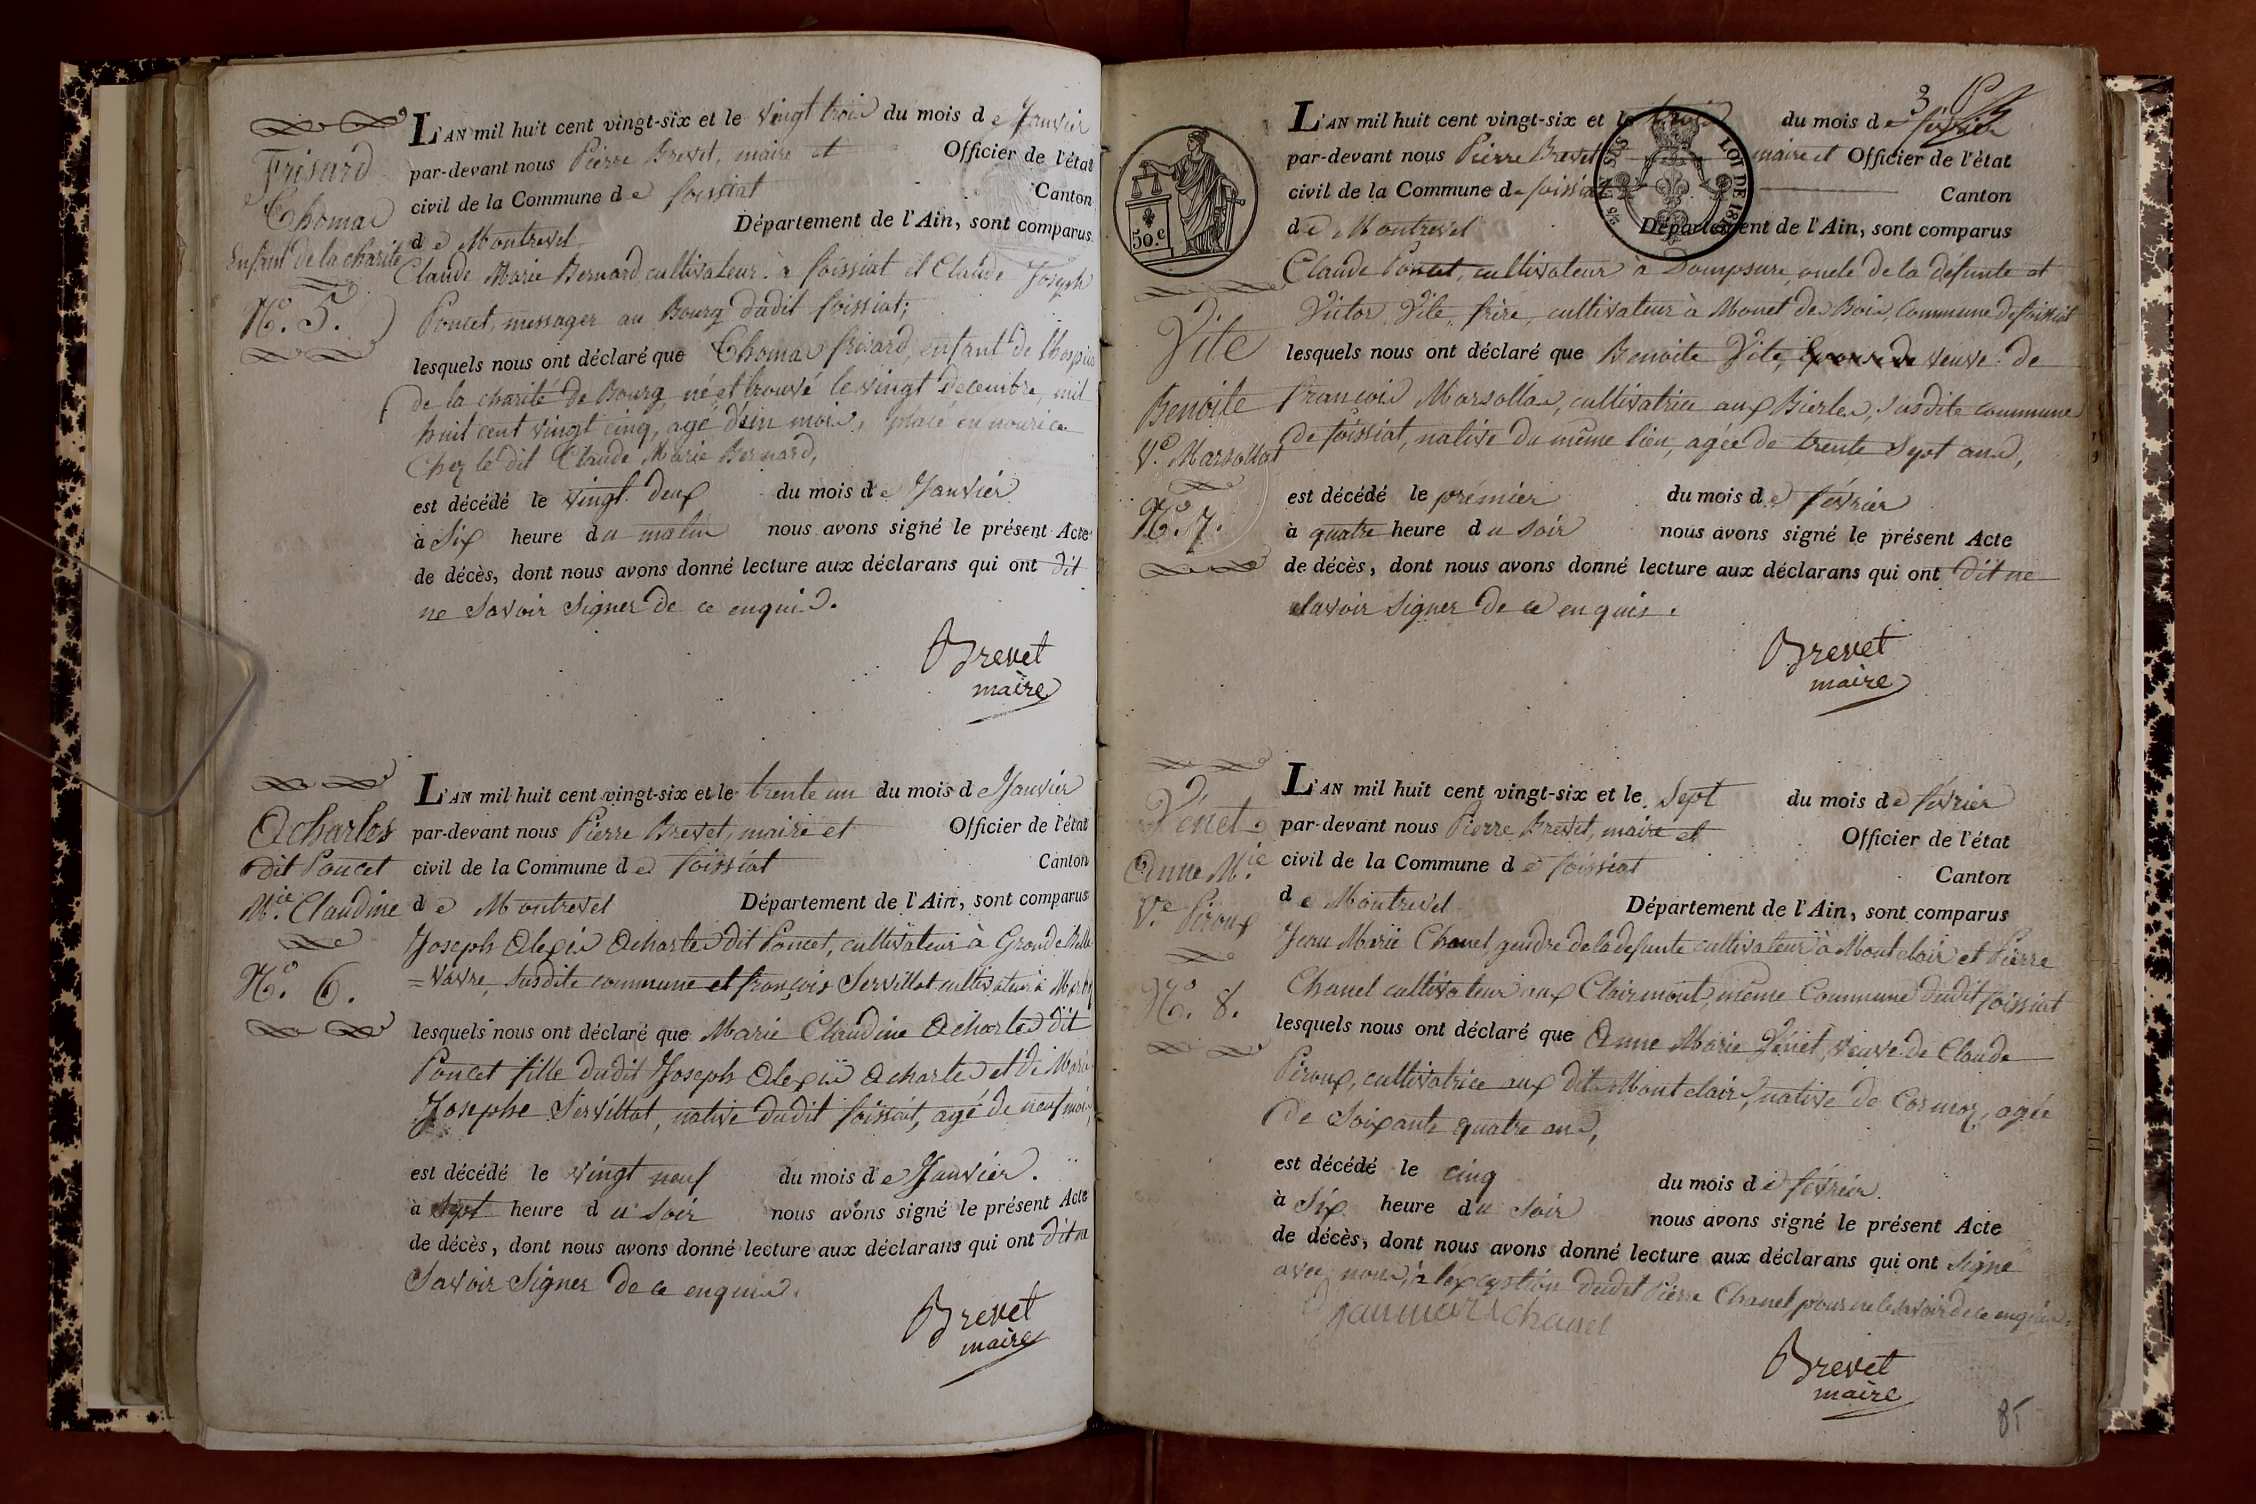 Frisard
Thomas
Enfant de la charité
N.° 5.
L'AN mil huit cent vingt-six et le vingt trois du mois de Janvier
par-devant nous Pierre Brevet, maire et Officier de l'état
civil de la Commune de foissiat Canton
de Montrevel Département de l'Ain, sont comparus
Claude Marie Bernard cultivateur à foissiat et Claude Joseph
Poncet, messager au Bourg dudit foissiat;
lesquels nous ont déclaré que Thomas frisard, enfant de l'hospice
de la charité de Bourg, né et trouvé le vingt decembre, mil
huit cent vingt cinq, agé d'un mois, placé en nourice
Chez le dit Claude Marie Bernard,
est décédé le vingt deux du mois de Janvier
à Six heure du matin nous avons signé le présent Acte
de décès, dont nous avons donné lecture aux déclarans qui ont dit
ne Savoir Signer de ce enquis.
Brevet
maire
Acharles
dit Poncet
M.ie Claudine
N.° 6.
L'AN mil huit cent vingt-six et le trente un du mois de Janvier
par-devant nous Pierre Brevet, maire et Officier de l'état
civil de la Commune de foissiat Canton
de Montrevel Département de l'Ain, sont comparus
Joseph Alexis Acharles dit Poncet, cultivateur à Grande Belle
= vavre, susdite commune et françois Servillat cultivateur à
lesquels nous ont déclaré que Marie Claudine Acharles dit
Poncet fille dudit Joseph Alexis Acharles et de Marie
Josephe Servillat, native dudit foissiat, agé de neuf mois,
est décédé le vingt neuf du mois de Janvier.
à Sept heure du Soir nous avons signé le présent Acte
de décès, dont nous avons donné lecture aux déclarans qui ont dit ne
Savoir Signer de ce enquis.
Brevet
maire
3
50.c
Vite
Benoite
V.e Marsollat
N.° 7.
L'AN mil huit cent vingt-six et le trois du mois de février
par-devant nous Pierre Brevet maire et Officier de l'état
civil de la Commune de foissiat Canton
de Montrevel Département de l'Ain, sont comparus
Claude Poncet, cultivateur à Dompsure, oncle de la défunte et
Victor Vite, frère, cultivateur à Monet des Bois, Commune de foissiat
lesquels nous ont déclaré que Benoite Vite, Epouse de veuve de
françois Marsollas, cultivatrice aux Bierles, susdite commune
de foissiat, native du même lieu, agée de trente Sept ans,
est décédé le premier du mois de février
à quatre heure du soir nous avons signé le présent Acte
de décès, dont nous avons donné lecture aux déclarans qui ont dit ne
Savoir Signer de ce enquis.
Brevet
maire
Vénet
Anne M.ie
V.e Piroux
N.° 8.
L'AN mil huit cent vingt-six et le Sept du mois de février
par-devant nous Pierre Brevet, maire et Officier de l'état
civil de la Commune de foissiat Canton
de Montrevel Département de l'Ain, sont comparus
Jean Marie Chanel, gendre de la defunte cultivateur à Montclair et Pierre
Chanel cultivateur aux Clairmont, même Commune dudit foissiat
lesquels nous ont déclaré que Anne Marie Vénet, veuve de Claude
Piroux, cultivatrice aux dits Montclair, native de Cormoz, agée
de Soixante quatre ans,
est décédé le cinq du mois de février.
à Six heure du Soir nous avons signé le présent Acte
de décès, dont nous avons donné lecture aux déclarans qui ont signé
avec nous, à l'exception dudit Pierre Chanel pour ne le savoir de ce enquis.
Janmarie chanel
Brevet
maire
85